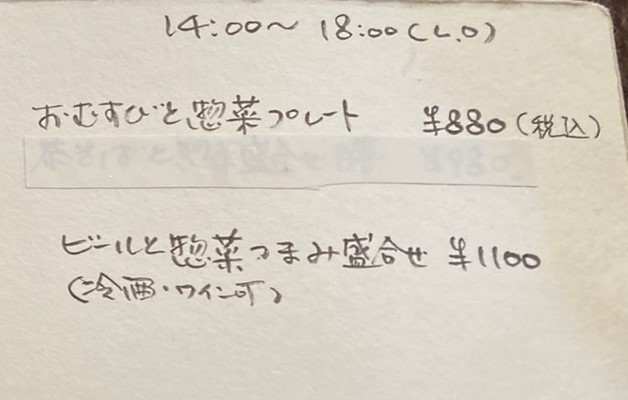 14:00〜18:00(L.O)
おむすびと惣菜プレート ¥880(税込)
ビールと惣菜つまみ盛合せ ¥1100
(冷酒・ワイン可)